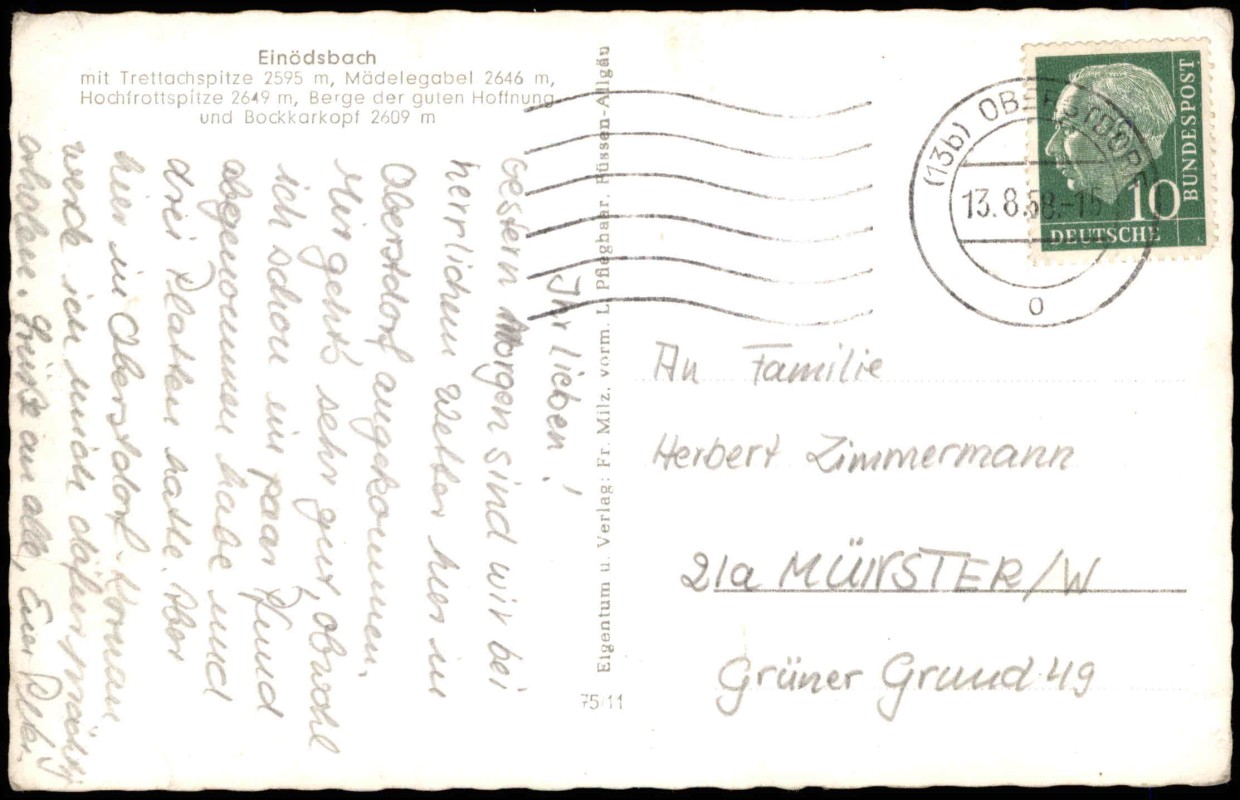 Einödsbach
mit Trettachspitze 2595 m, Mädelegabel 2646 m,
Hochfrottspitze 2649 m, Berge der guten Hoffnung
und Bockkarkopf 2609 m
Ihr lieben!
Gestern Morgen sind wir bei
herrlichem Wetter hier in
Oberstdorf angekommen.
Mir geht's sehr gut, obwohl
ich schon ein paar Pfund
abgenommen habe und
drei Platten hatte. Aber
hier in Oberstdorf
werde ich mich dafür mächtig
erholen. Grüße an alle, Euer
Eigentum u. Verlag: Fr. Milz, vorm. L. Pfleghaar, Füssen-Allgäu
75/11
(13b) OBERSTDORF
13.8.58.-15
o
BUNDESPOST
10
DEUTSCHE
An Familie
Herbert Zimmermann
21a MÜNSTER/W
Grüner Grund 49